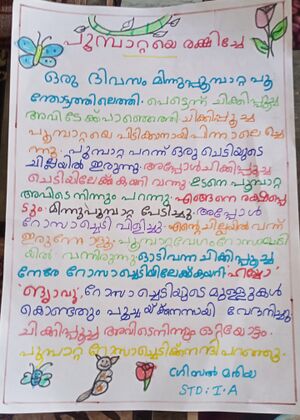 പൂമ്പാറ്റയെ രക്ഷിച്ചേ
ഒരു ദിവസം മിന്നുപ്പൂമ്പാറ്റ പൂ
ന്തോട്ടത്തിലെത്തി. പെട്ടെന്ന് ചിക്കിപ്പൂച്ച
അവിടേക്ക് പാഞ്ഞെത്തി ചിക്കിപ്പൂച്ച
പൂമ്പാറ്റയെ പിടിക്കാനായി പിന്നാലെ ചെ
ന്നു. പൂമ്പാറ്റ പറന്ന് ഒരു ചെടിയുടെ
ചില്ലയിൽ ഇരുന്നു. അപ്പോൾ ചിക്കിപ്പൂച്ച
ചെടിയിലേക്ക് കയറി വന്നു ഉടനെ പൂമ്പാറ്റ
അവിടെ നിന്നും പറന്നു. എങ്ങനെ രക്ഷപ്പെ
ടും. മിന്നുപൂമ്പാറ്റ പേടിച്ചു. അപ്പോൾ
റോസാച്ചെടി വിളിച്ചു. എന്റെ ചില്ലയിൽ വന്ന്
ഇരുന്നോളൂ. പൂമ്പാറ്റ വേഗം റോസാച്ചെടി
യിൽ വന്നിരുന്നു. ഓടിവന്ന ചിക്കിപ്പൂച്ച
നേരേ റോസാച്ചെടിയിലേക്ക് കയറി. ഹമ്മോ
'ങ്യാവൂ'. റോസാച്ചെടിയുടെ മുള്ളുകൾ
കൊണ്ടതും പൂച്ചയ്ക്ക് നന്നായി വേദനിച്ചു
ചിക്കിപ്പൂച്ച അവിടെ നിന്നും ഒറ്റയോട്ടം.
പൂമ്പാറ്റ റോസാച്ചെടിക്ക് നന്ദി പറഞ്ഞു.
ഗ്രീസൽ മരിയ
STD : I . A